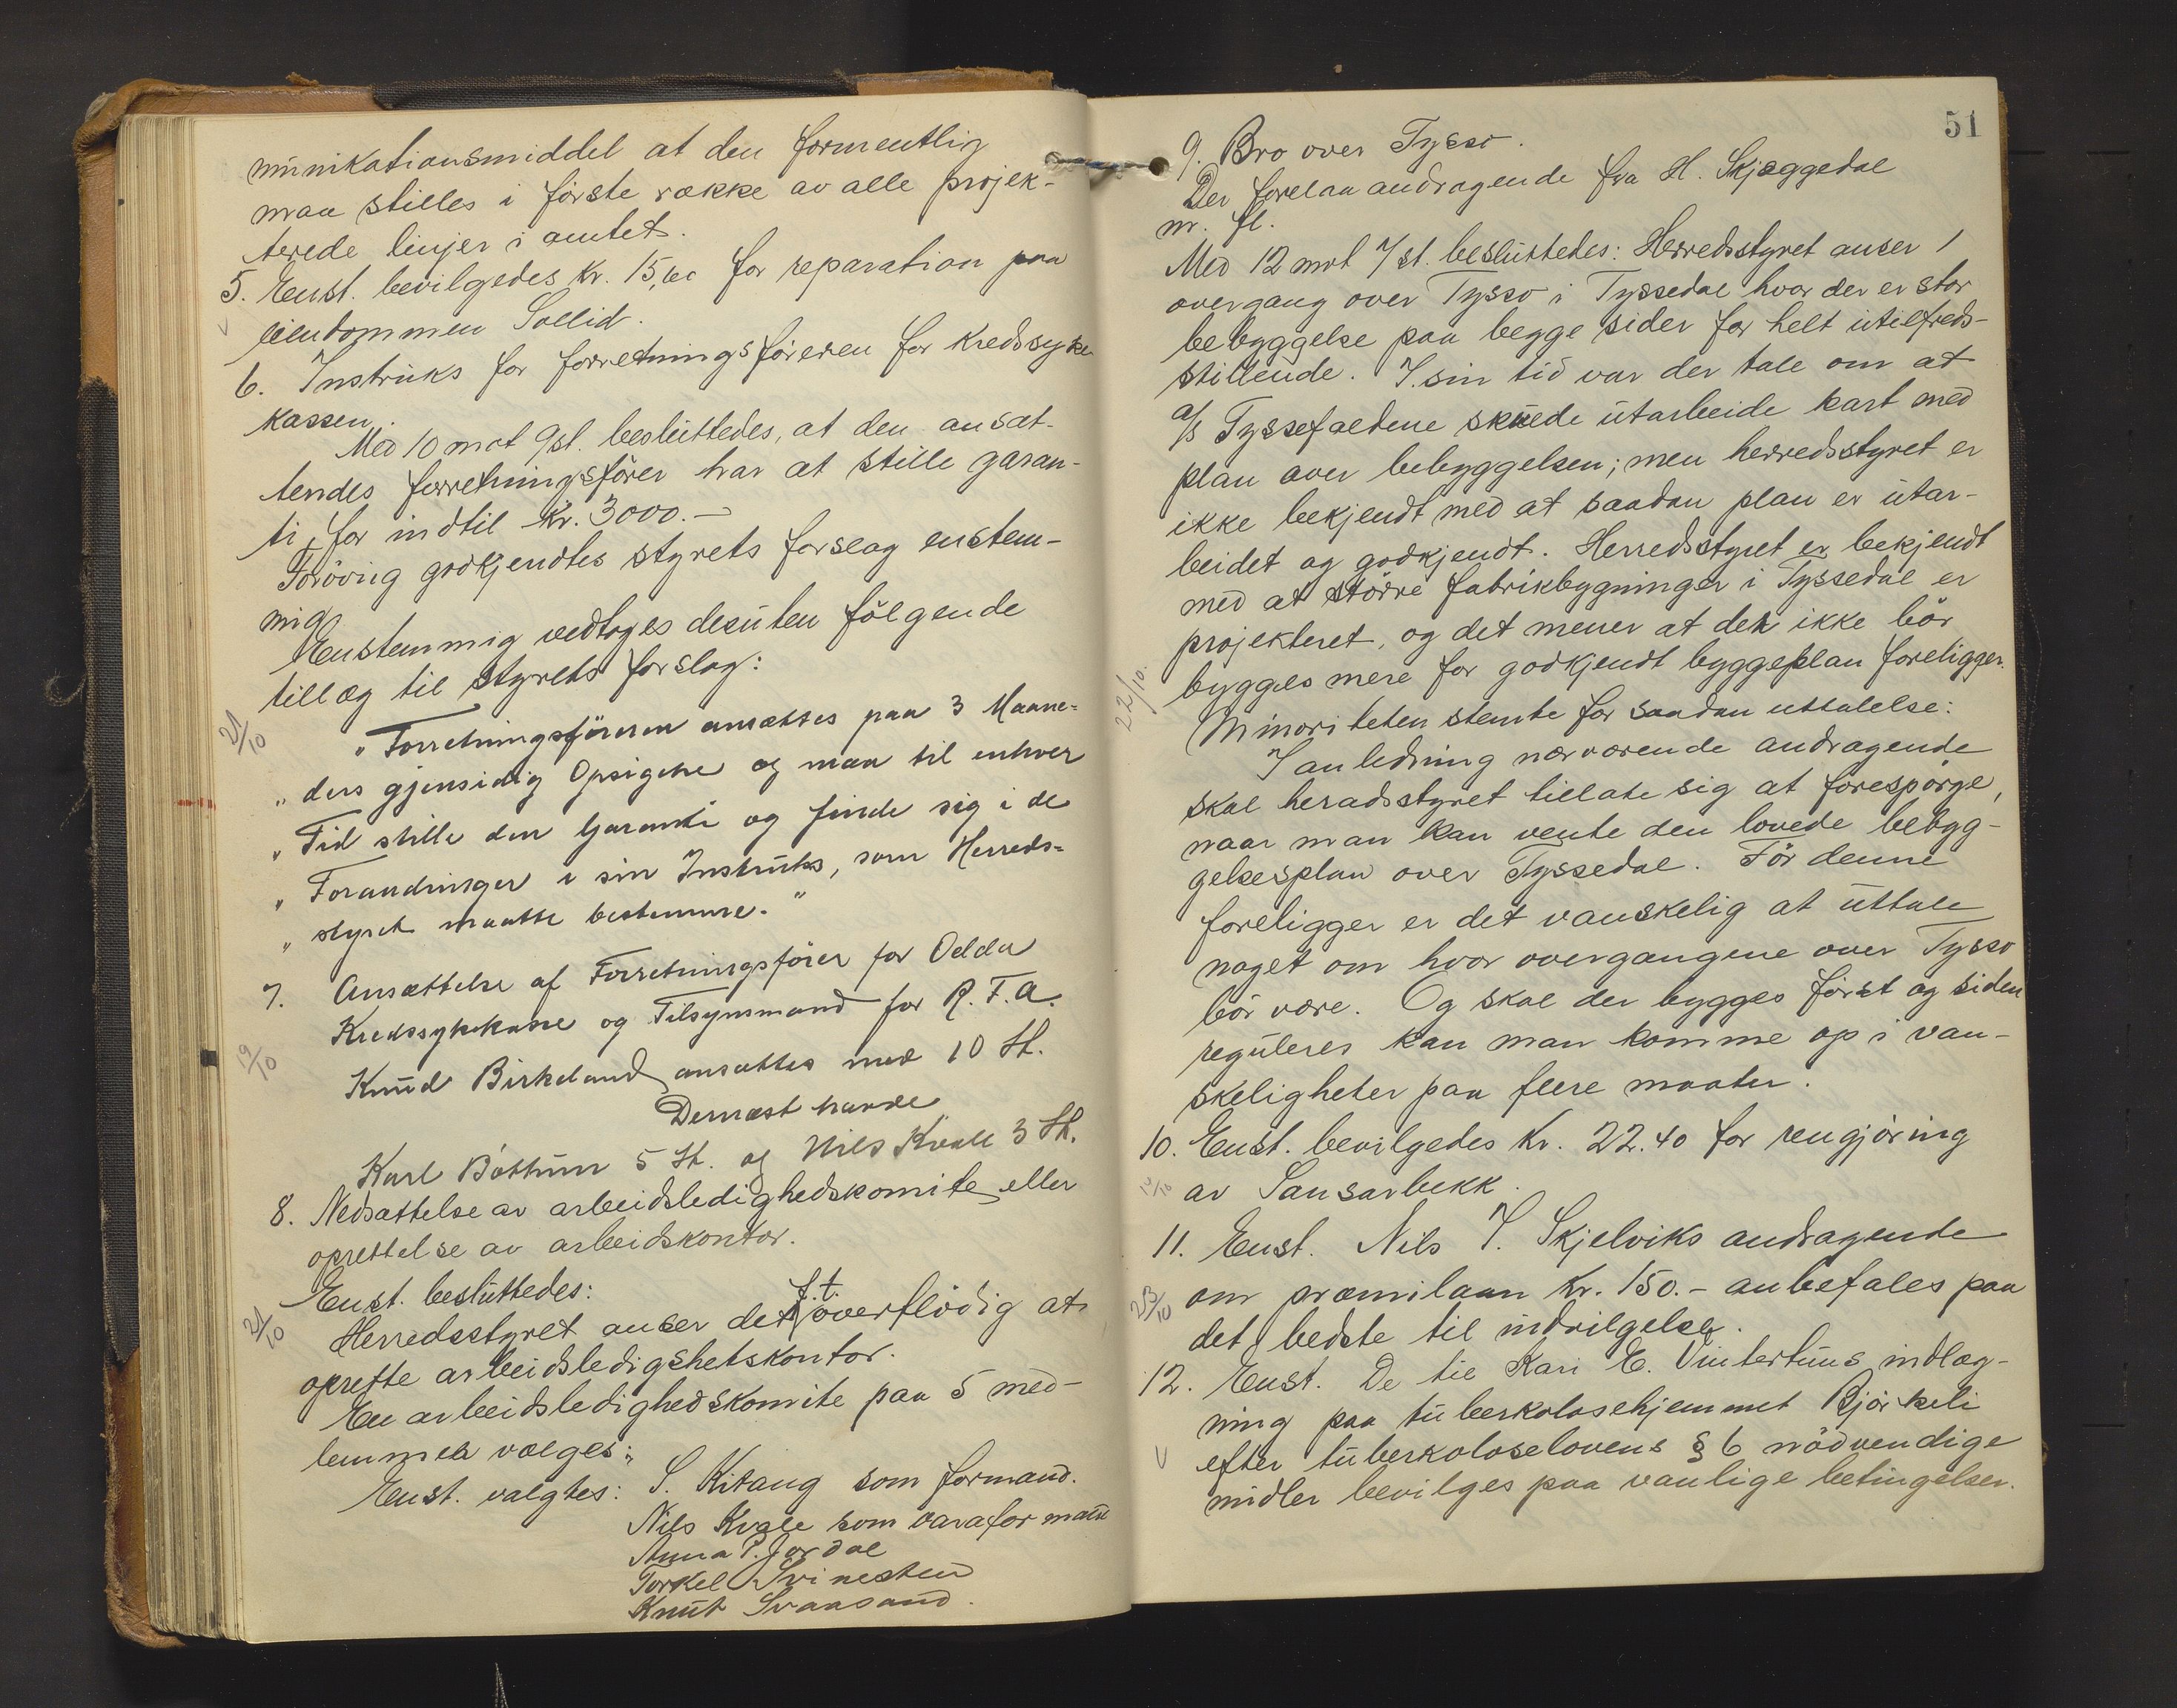 munikationsmiddel at den formentlig
maa stilles i første række av alle projek-
terede linjer i amtet.
5. Enst. bevilgedes Kr. 15,00 for reparation paa
eiendommen Sollid.
6. Instruks for forretningsføreren for Kredssyke
kassen.
Med 10 mot 9 st. besluttedes, at den ansat-
tendes forretningsfører har at stille garan-
ti for indtil Kr. 3000.-
Forøvrig godkjendtes styrets forslag enstem-
mig
Enstemmig vedtoges desuten følgende
tillæg til styrets forslag:
21/10
"Forretningsføreren ansættes paa 3 Maane-
"ders gjensidig Opsigelse og maa til enhver
"Tid stille den Garanti og finde sig i de
"Forandringer i sin Instruks, som Herreds-
"styret maatte bestemme."
7. Ansættelse af Forretningsfører for Odda
Kredssykekasse og Tilsynsmand for R.F.A.
19/10
Knud Birkeland ansattes med 10 St.
Dernæst havde
Karl Bøthun 5 St. og Nils Kvale 3 St.
8. Nedsættelse av arbeidsledighedskomite eller
oprettelse av arbeidskontor.
Enst. besluttedes:
21/10
f.t.
Herredsstyret anser det overflødig at
oprette arbeidsledigshetskontor.
En arbeidsledighedskomite paa 5 med-
lemmer vælges:
Enst. valgtes: S. Kitang som formand.
Nils Kvale som varaformand
Anna P. Jordal
Torkel Tvinesten
Knut Svaasand.
51
9. Bro over Tysso.
Der forelaa andragende fra H. Skjæggedal
m. fl.
Med 12 mot 7 st. besluttedes: Herredsstyret anser 1
overgang over Tysso i Tyssedal hvor der er stor
bebyggelse paa begge sider for helt utilfreds-
stillende. I sin tid var der tale om at
A/S Tyssefaldene skulde utarbeide kart med
plan over bebyggelsen; men herredsstyret er
ikke bekjendt med at saadan plan er utar-
beidet og godkjendt. Herredsstyret er bekjendt
med at større fabrikbygninger i Tyssedal er
projekteret, og det mener at der ikke bør
bygges mere før godkjendt byggeplan foreligger.
22/10.
Minoriteten stemte for saadan uttalelse:
I anledning nærværende andragende
skal heradsstyret tillate sig at forespørge,
naar man kan vente den lovede bebyg-
gelsesplan over Tyssedal. Før denne
foreligger er det vanskelig at uttale
noget om hvor overgangene over Tysso
bør være. Og skal der bygges først og siden
reguleres kan man komme op i van-
skeligheter paa flere maater.
10. Enst. bevilgedes Kr. 22.40 for rengjøring
av Sansarbekk.
11. Enst. Nils T. Skjelviks andragende
23/10
om præmilaan Kr. 150.- anbefales paa
det bedste til indvilgelse.
12. Enst. De til Kari E. Vintertuns indlæg-
ning paa tuberkolosehjemmet Bjørkeli
efter tuberkoloselovens § 6 nødvendige
midler bevilges paa vanlige betingelser.